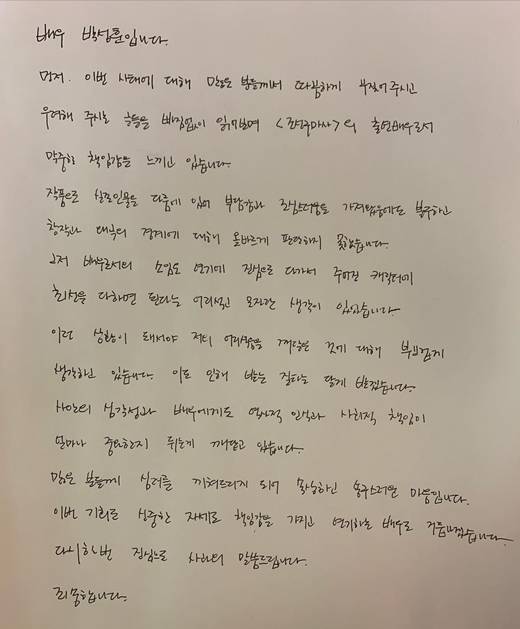 배우 박성훈입니다.
먼저, 이번 사태에 대해 많은 분들께서 따끔하게 꾸짖어 주시고
우려해 주시는 글들을 빠짐없이 읽어보며 <조선구마사>의 출연배우로서
막중한 책임감을 느끼고 있습니다.
작품으로 실존인물을 다룸에 있어 부담감과 조심스러움을 가져왔음에도 불구하고
창작과 왜곡의 경계에 대해 올바르게 판단하지 못했습니다.
그저 배우로서의 소임은 연기에 진심으로 다가서 주어진 캐릭터에
최선을 다하면 된다는 어리석고 모자란 생각이 있었습니다.
이런 상황이 돼서야 저의 어리석음을 깨달은 것에 대해 부끄럽게
생각하고 있습니다. 이로 인해 받는 질타는 달게 받겠습니다.
사안의 심각성과 배우에게도 역사적 인식과 사회적 책임이
얼마나 중요한지 뒤늦게 깨닫고 있습니다.
많은 분들께 심려를 끼쳐드리게 되어 죄송하고 송구스러운 마음입니다.
이번 기회로 신중한 자세로 책임감을 가지고 연기하는 배우로 거듭나겠습니다.
다시 한번 진심으로 사과의 말씀드립니다.
죄송합니다.